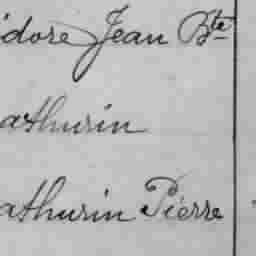 idore Jean Bte
athurin
athurin Pierre